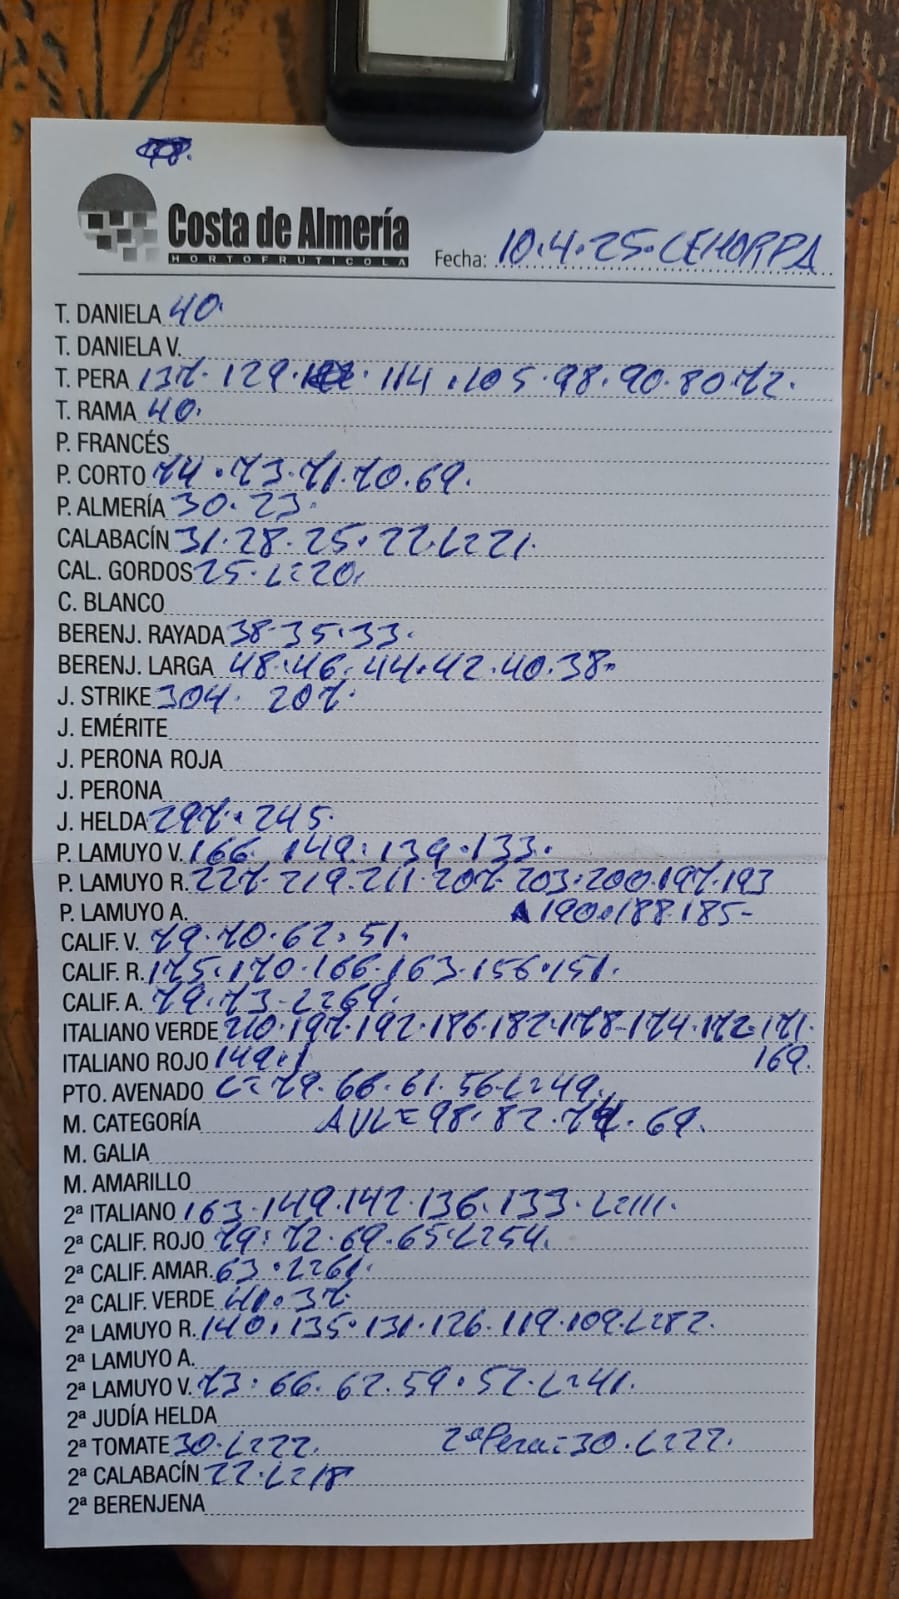 Costa de Almería
HORTOFRUTICOLA
Fecha: 10.4.25. CEHORPA
T. DANIELA 40.
T. DANIELA V.
T. PERA 137. 129. 114. 105. 98. 90. 80. 72.
T. RAMA 40.
P. FRANCÉS
P. CORTO 74. 73. 71. 70. 69.
P. ALMERÍA 30. 23.
CALABACÍN 31. 28. 25. 22. L=21.
CAL. GORDOS 25. L=20.
C. BLANCO
BERENJ. RAYADA 38. 35. 33.
BERENJ. LARGA 48. 46. 44. 42. 40. 38.
J. STRIKE 304. 207.
J. EMÉRITE
J. PERONA ROJA
J. PERONA
J. HELDA 297. 245.
P. LAMUYO V. 166. 149. 139. 133.
P. LAMUYO R. 227. 219. 211. 207. 203. 200. 197. 193
P. LAMUYO A. 190. 188. 185-
CALIF. V. 79. 70. 62. 51.
CALIF. R. 175. 170. 166. 163. 156. 151.
CALIF. A. 79. 73. L=69.
ITALIANO VERDE 210. 197. 192. 186. 182. 178. 174. 172. 171.
ITALIANO ROJO 149. 169.
PTO. AVENADO L=79. 66. 61. 56. L=49.
M. CATEGORÍA AVL=98. 82. 74. 69.
M. GALIA
M. AMARILLO
2ª ITALIANO 163. 149. 142. 136. 133. L=111.
2ª CALIF. ROJO 79. 72. 69. 65. L=54.
2ª CALIF. AMAR. 63. L=61.
2ª CALIF. VERDE 41. 37.
2ª LAMUYO R. 140. 135. 131. 126. 119. 109. L=82.
2ª LAMUYO A.
2ª LAMUYO V. 73. 66. 62. 59. 52. L=41.
2ª JUDÍA HELDA
2ª TOMATE 30. L=22. 2ª Pera=30. L=22.
2ª CALABACÍN 22. L=18
2ª BERENJENA